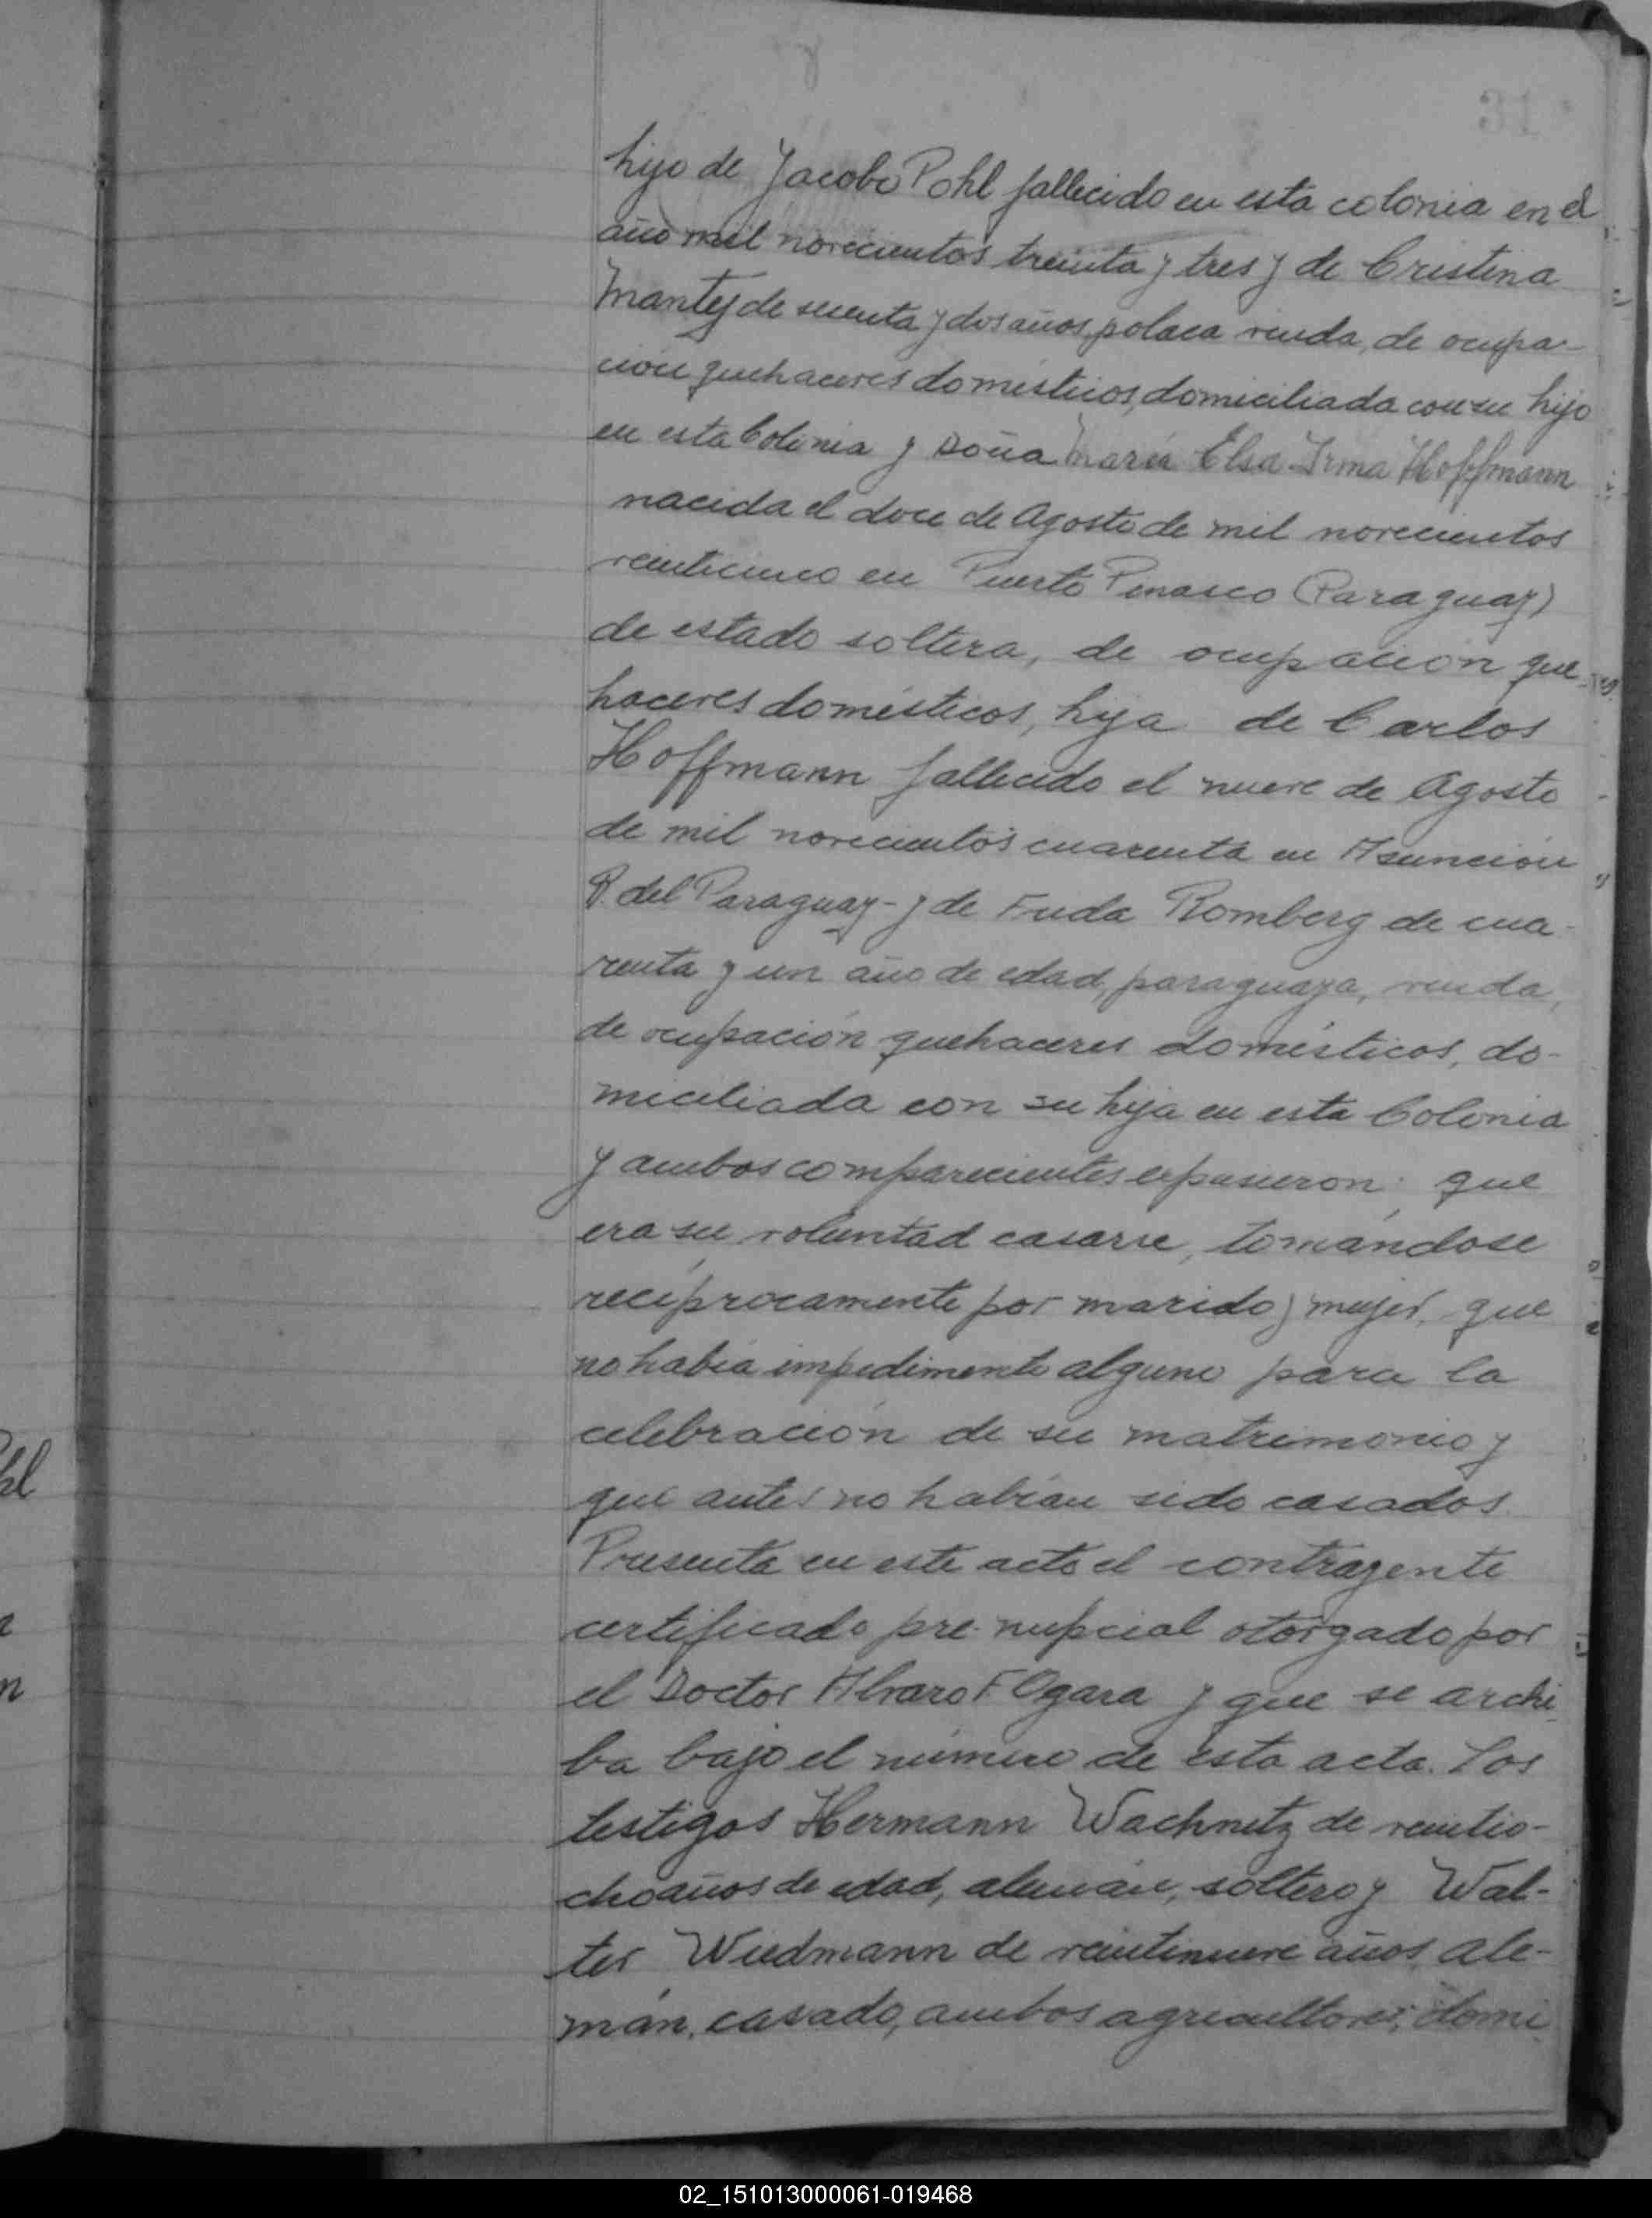 31
hijo de Jacobo Pohl fallecido en esta colonia en el
año mil novecientos treinta y tres y de Cristina
Mantej de sesenta y dos años, polaca viuda, de ocupa-
ción quehaceres domésticos, domiciliada con su hijo
en esta Colonia y Doña María Elsa Irma Hoffmann
nacida el doce de Agosto de mil novecientos
veinticinco en Puerto Pinasco (Paraguay)
de estado soltera, de ocupación que
haceres domésticos, hija de Carlos
Hoffmann fallecido el nueve de Agosto
de mil novecientos cuarenta en Asunción
R. del Paraguay - y de Frida Romberg de cua-
renta y un año de edad, paraguaya, viuda,
de ocupación quehaceres domésticos, do-
miciliada con su hija en esta Colonia
y ambos comparecientes expusieron: que
era su voluntad casarse, tomándose
recíprocamente por marido y mujer, que
no había impedimento alguno para la
celebración de su matrimonio y
que antes no habían sido casados.
Presenta en este acto el contrayente
certificado pre-nupcial otorgado por
el Doctor Alvaro F Ogara y que se archi
ba bajo el número de esta acta. Los
testigos Hermann Wachnitz de veintio-
cho años de edad, alemán, soltero y Wal-
ter Wiedmann de veintinueve años, ale-
mán, casado, ambos agricultores, domi
hl
n
02_151013000061-019468